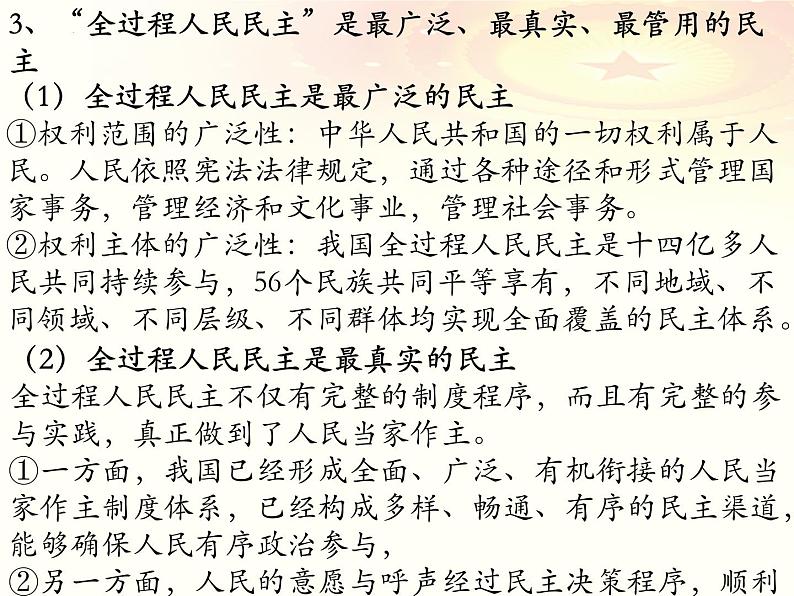 3、“全过程人民民主”是最广泛、最真实、最管用的民
主
（1）全过程人民民主是最广泛的民主
①权利范围的广泛性：中华人民共和国的一切权利属于人
民。人民依照宪法法律规定，通过各种途径和形式管理国
家事务，管理经济和文化事业，管理社会事务。
②权利主体的广泛性：我国全过程人民民主是十四亿多人
民共同持续参与，56个民族共同平等享有，不同地域、不
同领域、不同层级、不同群体均实现全面覆盖的民主体系。
（2）全过程人民民主是最真实的民主
全过程人民民主不仅有完整的制度程序，而且有完整的参
与实践，真正做到了人民当家作主。
①一方面，我国已经形成全面、广泛、有机衔接的人民当
家作主制度体系，已经构成多样、畅通、有序的民主渠道，
能够确保人民有序政治参与，
②另一方面，人民的意愿与呼声经过民主决策程序，顺利